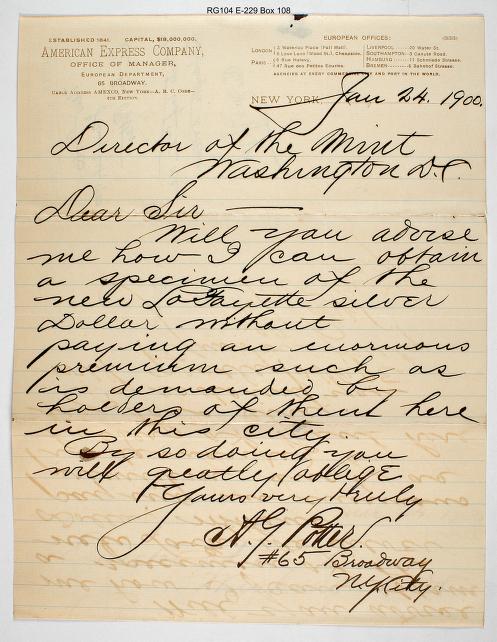 RG104 E-229 Box 108
ESTABLISHED 1841. CAPITAL, $18,000,000.
AMERICAN EXPRESS COMPANY,
OFFICE OF MANAGER,
EUROPEAN DEPARTMENT,
65 BROADWAY.
CABLE ADDRESS AMEXCO, NEW YORK—A. B. C. CODE—
4TH EDITION.
EUROPEAN OFFICES:
LONDON 3 Waterloo Place (Pall Mall).
LIVERPOOL 20 Water St.
SOUTHAMPTON 5 Canute Road.
PARIS 6 Rue Halevy.
HAMBURG 11 Schmiede Strasse.
47 Rue des Petites Ecuries.
BREMEN 6 Bahnhof Strasse.
AGENCIES AT EVERY COMMERCIAL CITY AND PORT IN THE WORLD.
NEW YORK, Jan 24. 1900.
Director of the Mint
Washington D.C.
Dear Sir —
Will you advise
me how I can obtain
a specimen of the
new LaFayette silver
Dollar without
paying an enormous
premium such as
is demanded by
holder of them here
in this city.
By so doing you
will greatly oblige
Yours very truly
A. G. Potter
#65 Broadway
N.Y. City.